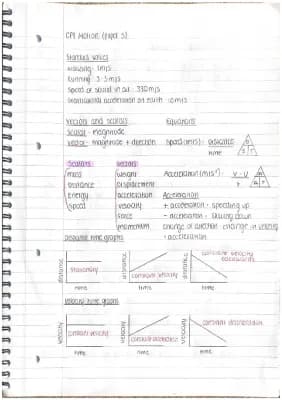 CP1 Motion (paper 5)
Standard values
walking - 1m/s
Running - 3.5m/s
Speed of sound in air - 330m/s
Gravitational acceleration on earth - 10m/s
Vectors and scalars Equations
Scalar - magnitude
Vector - magnitude + direction Speed (m/s): distance
time
Scalars vectors
mass weight Acceleration (m/s²): v - u
distance displacement t
Energy acceleration Acceleration
Speed velocity + acceleration: speeding up
force - acceleration: slowing down
momentum change of direction: change in velocity
: acceleration
Distance time graphs
distance stationary distance constant velocity distance constant velocity backwards
time time time
Velocity time graphs
velocity constant velocity velocity constant acceleration velocity constant deceleration
time time time